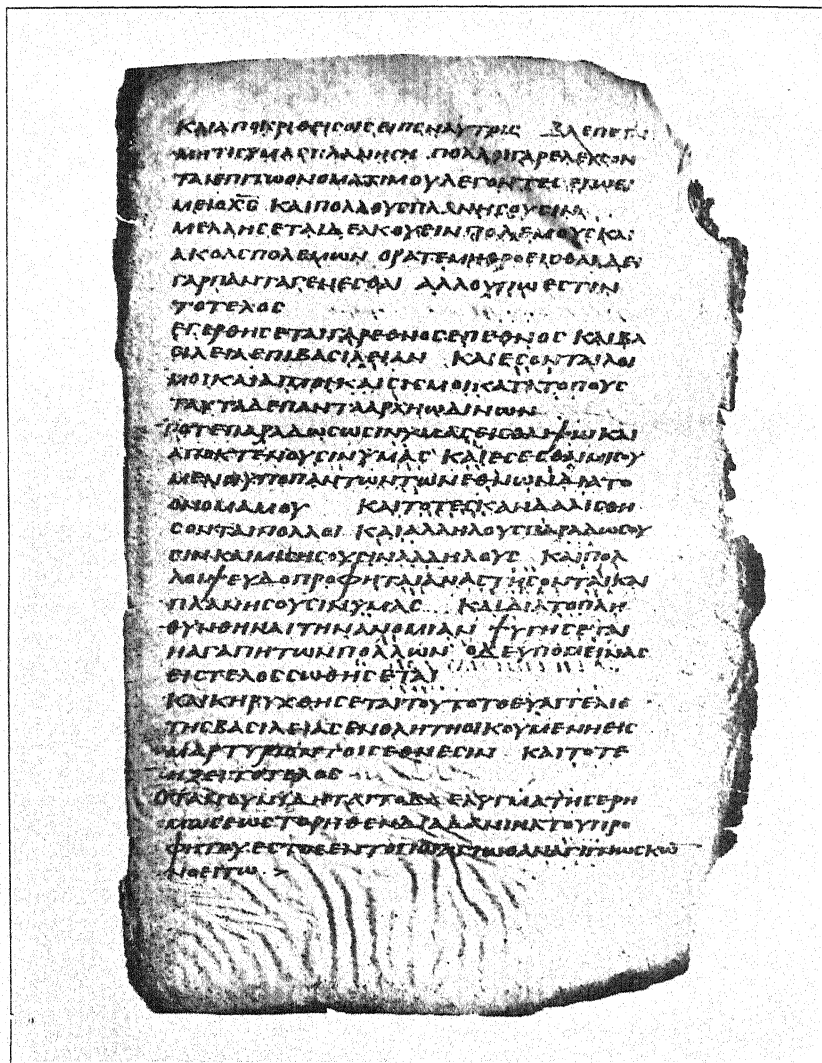 ΚΑΙΑΠΟΚΡΙΘΕΙϹΟΙϹΕΙΠΕΝΑΥΤΟΙϹ ΒΛΕΠΕΤΕ
ΜΗΤΙϹΥΜΑϹΠΛΑΝΗϹΗ ΠΟΛΛΟΙΓΑΡΕΛΕΥϹΟΝ
ΤΑΙΕΠΙΤΩΟΝΟΜΑΤΙΜΟΥΛΕΓΟΝΤΕϹ ΕΓΩΕΙ
ΜΕΙΟΧ̅Ϲ̅ ΚΑΙΠΟΛΛΟΥϹΠΛΑΝΗϹΟΥϹΙΝ
ΜΕΛΛΗϹΕΤΑΙΔΕΑΚΟΥΕΙΝΠΟΛΕΜΟΥϹΚΑΙ
ΑΚΟΑϹΠΟΛΕΜΩΝ ΟΡΑΤΕΜΗΘΡΟΕΙϹΘΑΙΔΕΙ
ΓΑΡΠΑΝΤΑΓΕΝΕϹΘΑΙ ΑΛΛΟΥΠΩΕϹΤΙΝ
ΤΟΤΕΛΟϹ
ΕΓΕΡΘΗϹΕΤΑΙΓΑΡΕΘΝΟϹΕΠΕΘΝΟϹ ΚΑΙΒΑ
ϹΙΛΕΙΑΕΠΙΒΑϹΙΛΕΙΑΝ ΚΑΙΕϹΟΝΤΑΙΛΟΙ
ΜΟΙΚΑΙΛΙΜΟΙΚΑΙϹΙϹΜΟΙΚΑΤΑΤΟΠΟΥϹ
ΤΑΥΤΑΔΕΠΑΝΤΑΑΡΧΗΩΔΙΝΩΝ
ΤΟΤΕΠΑΡΑΔΩϹΩϹΙΝΥΜΑϹΕΙϹΘΛΙΨΙΝΚΑΙ
ΑΠΟΚΤΕΝΟΥϹΙΝΥΜΑϹ ΚΑΙΕϹΕϹΘΑΙΜΙϹΟΥ
ΜΕΝΟΙΥΠΟΠΑΝΤΩΝΤΩΝΕΘΝΩΝΔΙΑΤΟ
ΟΝΟΜΑΜΟΥ ΚΑΙΤΟΤΕϹΚΑΝΔΑΛΙϹΘΗ
ϹΟΝΤΑΙΠΟΛΛΟΙ ΚΑΙΑΛΛΗΛΟΥϹΠΑΡΑΔΩϹΟΥ
ϹΙΝΚΑΙΜΙϹΗϹΟΥϹΙΝΑΛΛΗΛΟΥϹ ΚΑΙΠΟΛ
ΛΟΙΨΕΥΔΟΠΡΟΦΗΤΑΙΑΝΑϹΤΗϹΟΝΤΑΙΚΑΙ
ΠΛΑΝΗϹΟΥϹΙΝΥΜΑϹ ΚΑΙΔΙΑΤΟΠΛΗ
ΘΥΝΘΗΝΑΙΤΗΝΑΝΟΜΙΑΝ ΨΥΓΗϹΕΤΑΙ
ΗΑΓΑΠΗΤΩΝΠΟΛΛΩΝ ΟΔΕΥΠΟΜΕΙΝΑϹ
ΕΙϹΤΕΛΟϹϹΩΘΗϹΕΤΑΙ
ΚΑΙΚΗΡΥΧΘΗϹΕΤΑΙΤΟΥΤΟΤΟΕΥΑΓΓΕΛΙΟ
ΤΗϹΒΑϹΙΛΕΙΑϹΕΝΟΛΗΤΗΟΙΚΟΥΜΕΝΗΕΙϹ
ΜΑΡΤΥΡΙΟΝΤΟΙϹΕΘΝΕϹΙΝ ΚΑΙΤΟΤΕ
ΗΞΕΙΤΟΤΕΛΟϹ
ΟΤΑΝΟΥΝΙΔΗΤΑΙΤΟΒΔΕΛΥΓΜΑΤΗϹΕΡΗ
ΜΩϹΕΩϹΤΟΡΗΘΕΝΔΙΑΔΑΝΙΗΛΤΟΥΠΡΟ
ΦΗΤΟΥ ΕϹΤΟϹΕΝΤΟΠΩΑΓΙΩΟΑΝΑΓΙΓΝΩϹΚΩ
ΝΟΕΙΤΩ >